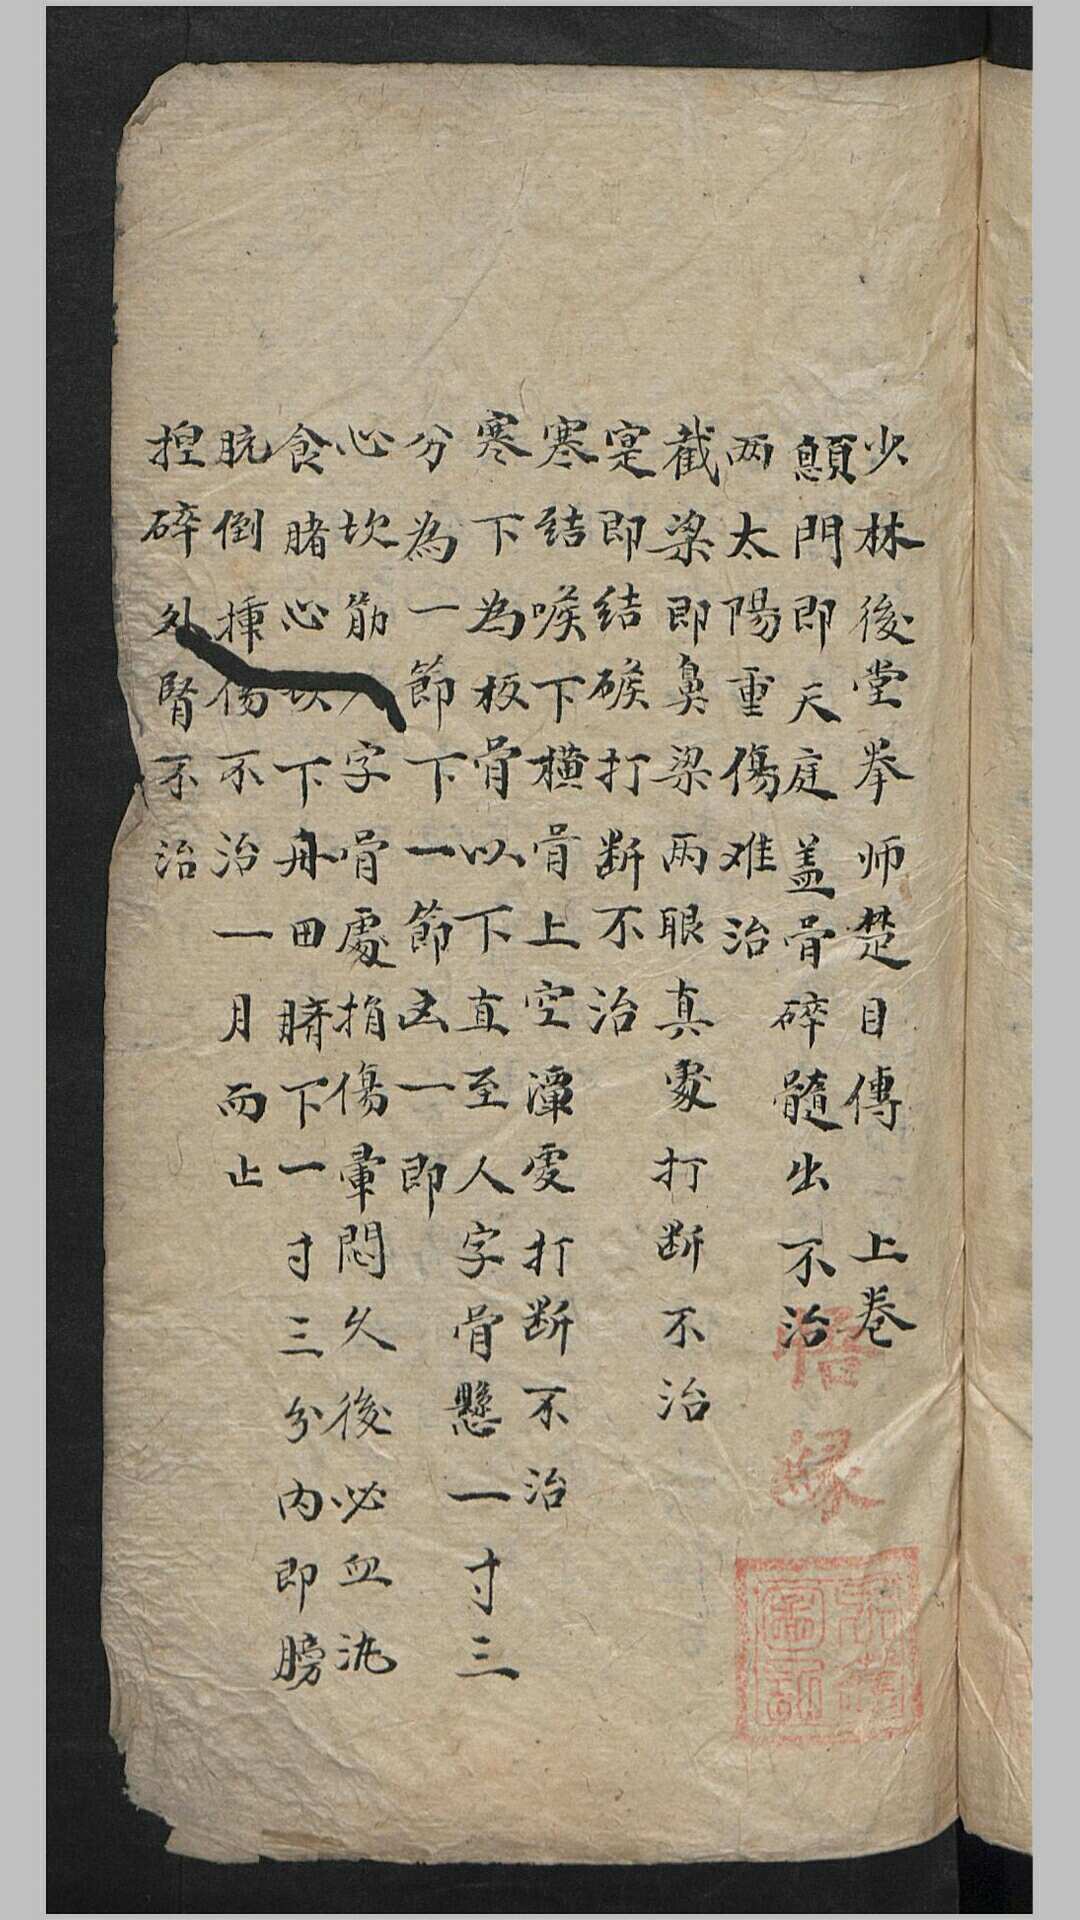 少林後堂拳师楚目傳 上卷
顖門即天庭盖骨碎髓出不治
两太陽重傷难治
截梁即鼻梁两眼真䖏打断不治
寔即结㗋打断不治
寒结喉下横骨上空潭䖏打断不治
寒下為板骨以下直至人字骨懸一寸三
分為一節下一節凶一即
心坎筋人字骨處捐傷暈悶久後必血汍
食睹心坎下丹田臍下一寸三分内即膀
脘倒捶傷不治一月而止
捏碎外腎不治
悟缘